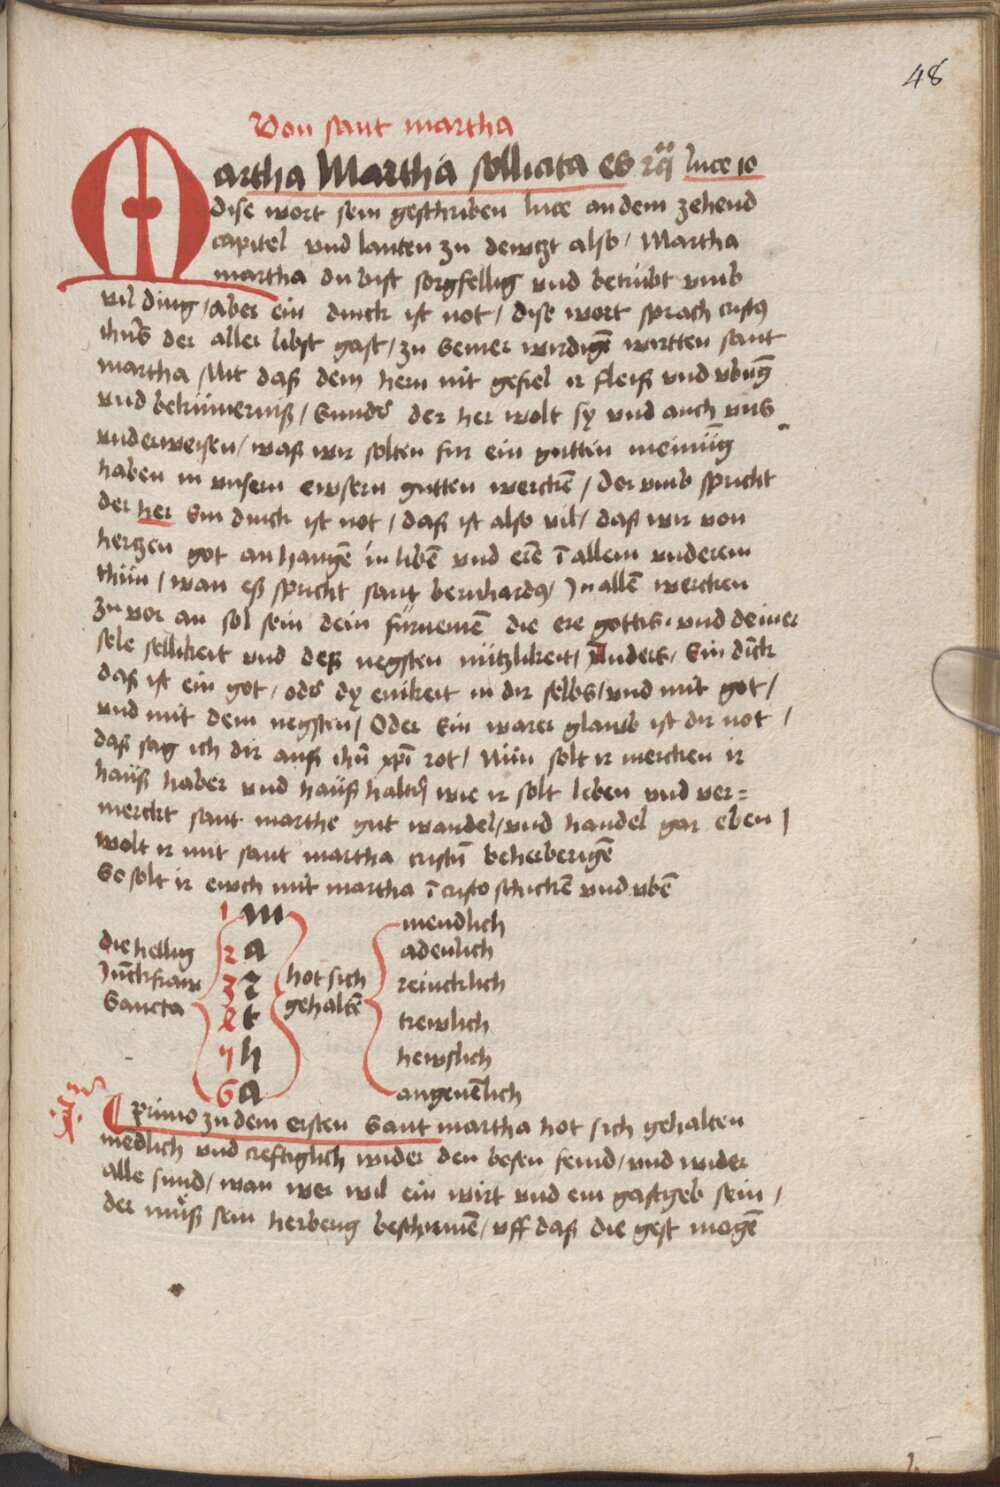 48
Von sant martha
Martha Martha sollicita es rͣq̃ luce 10
dise wort sein geschriben luce an dem zehend
capitel vnd lauten zu dewtzt also / Martha
martha du bist sorgfellig vnd betrubt vmb
vil ding / aber ein dinck ist not / dise wort sprach cristꝰ
ihus der aller libst gast / zu seiner wirdigē wirtten sant
martha Mit daß dem hern nit gefiel ir fleiß vnd vbūg
vnd bekümerniß / Sunder der her wolt sy vnd auch vns
vnderweisen / waß wir solten fur ein gutten meinūg
haben in vnsern ewsern gutten werckē / der vmb spricht
der her Ein dinck ist not / daß ist also vil / daß wir von
hertzen got an hangē in libē vnd erē ī allem vnderem
thun / wan eß spricht sant bernhardꝰ / In allē wercken
zu vor an sol sein dein fürnemē die ere gottis vnd deiner
sele sellikeit vnd deß negsten nützlikeit / Anders / Ein dīck
daß ist ein got / oder dy enikeit in dir selbs / vnd mit got /
vnd mit dem negsten / Oder Ein warer glawb ist dir not /
daß sag ich dir auß ihū xpī rot / Nün solt ir mercken ir
hauß haber vnd hauß halter wie ir solt leben vnd ver=
merckt sant marthe gut wandel / vnd handel gar eben /
wolt ir mit sant martha cristū beherberigē
So solt ir ewch mit martha ī cristo schickē vnd vbē
die hellig Junckfraw Sancta
1 m
2 a
3 r
4 t
5 h
6 a
hot sich gehaltē
mendlich
adenlich
reincklich
trewlich
hewslich
angenēlich
.I. m
Primo zu dem ersten Sant martha hot sich gehalten
mēdlich vnd creftiglich wider den besen feind / vnd wider
alle sund / wan wer wil ein wirt vnd ein gastgeb sein /
der muß sein herberg beschirmē / vff daß die gest mogē